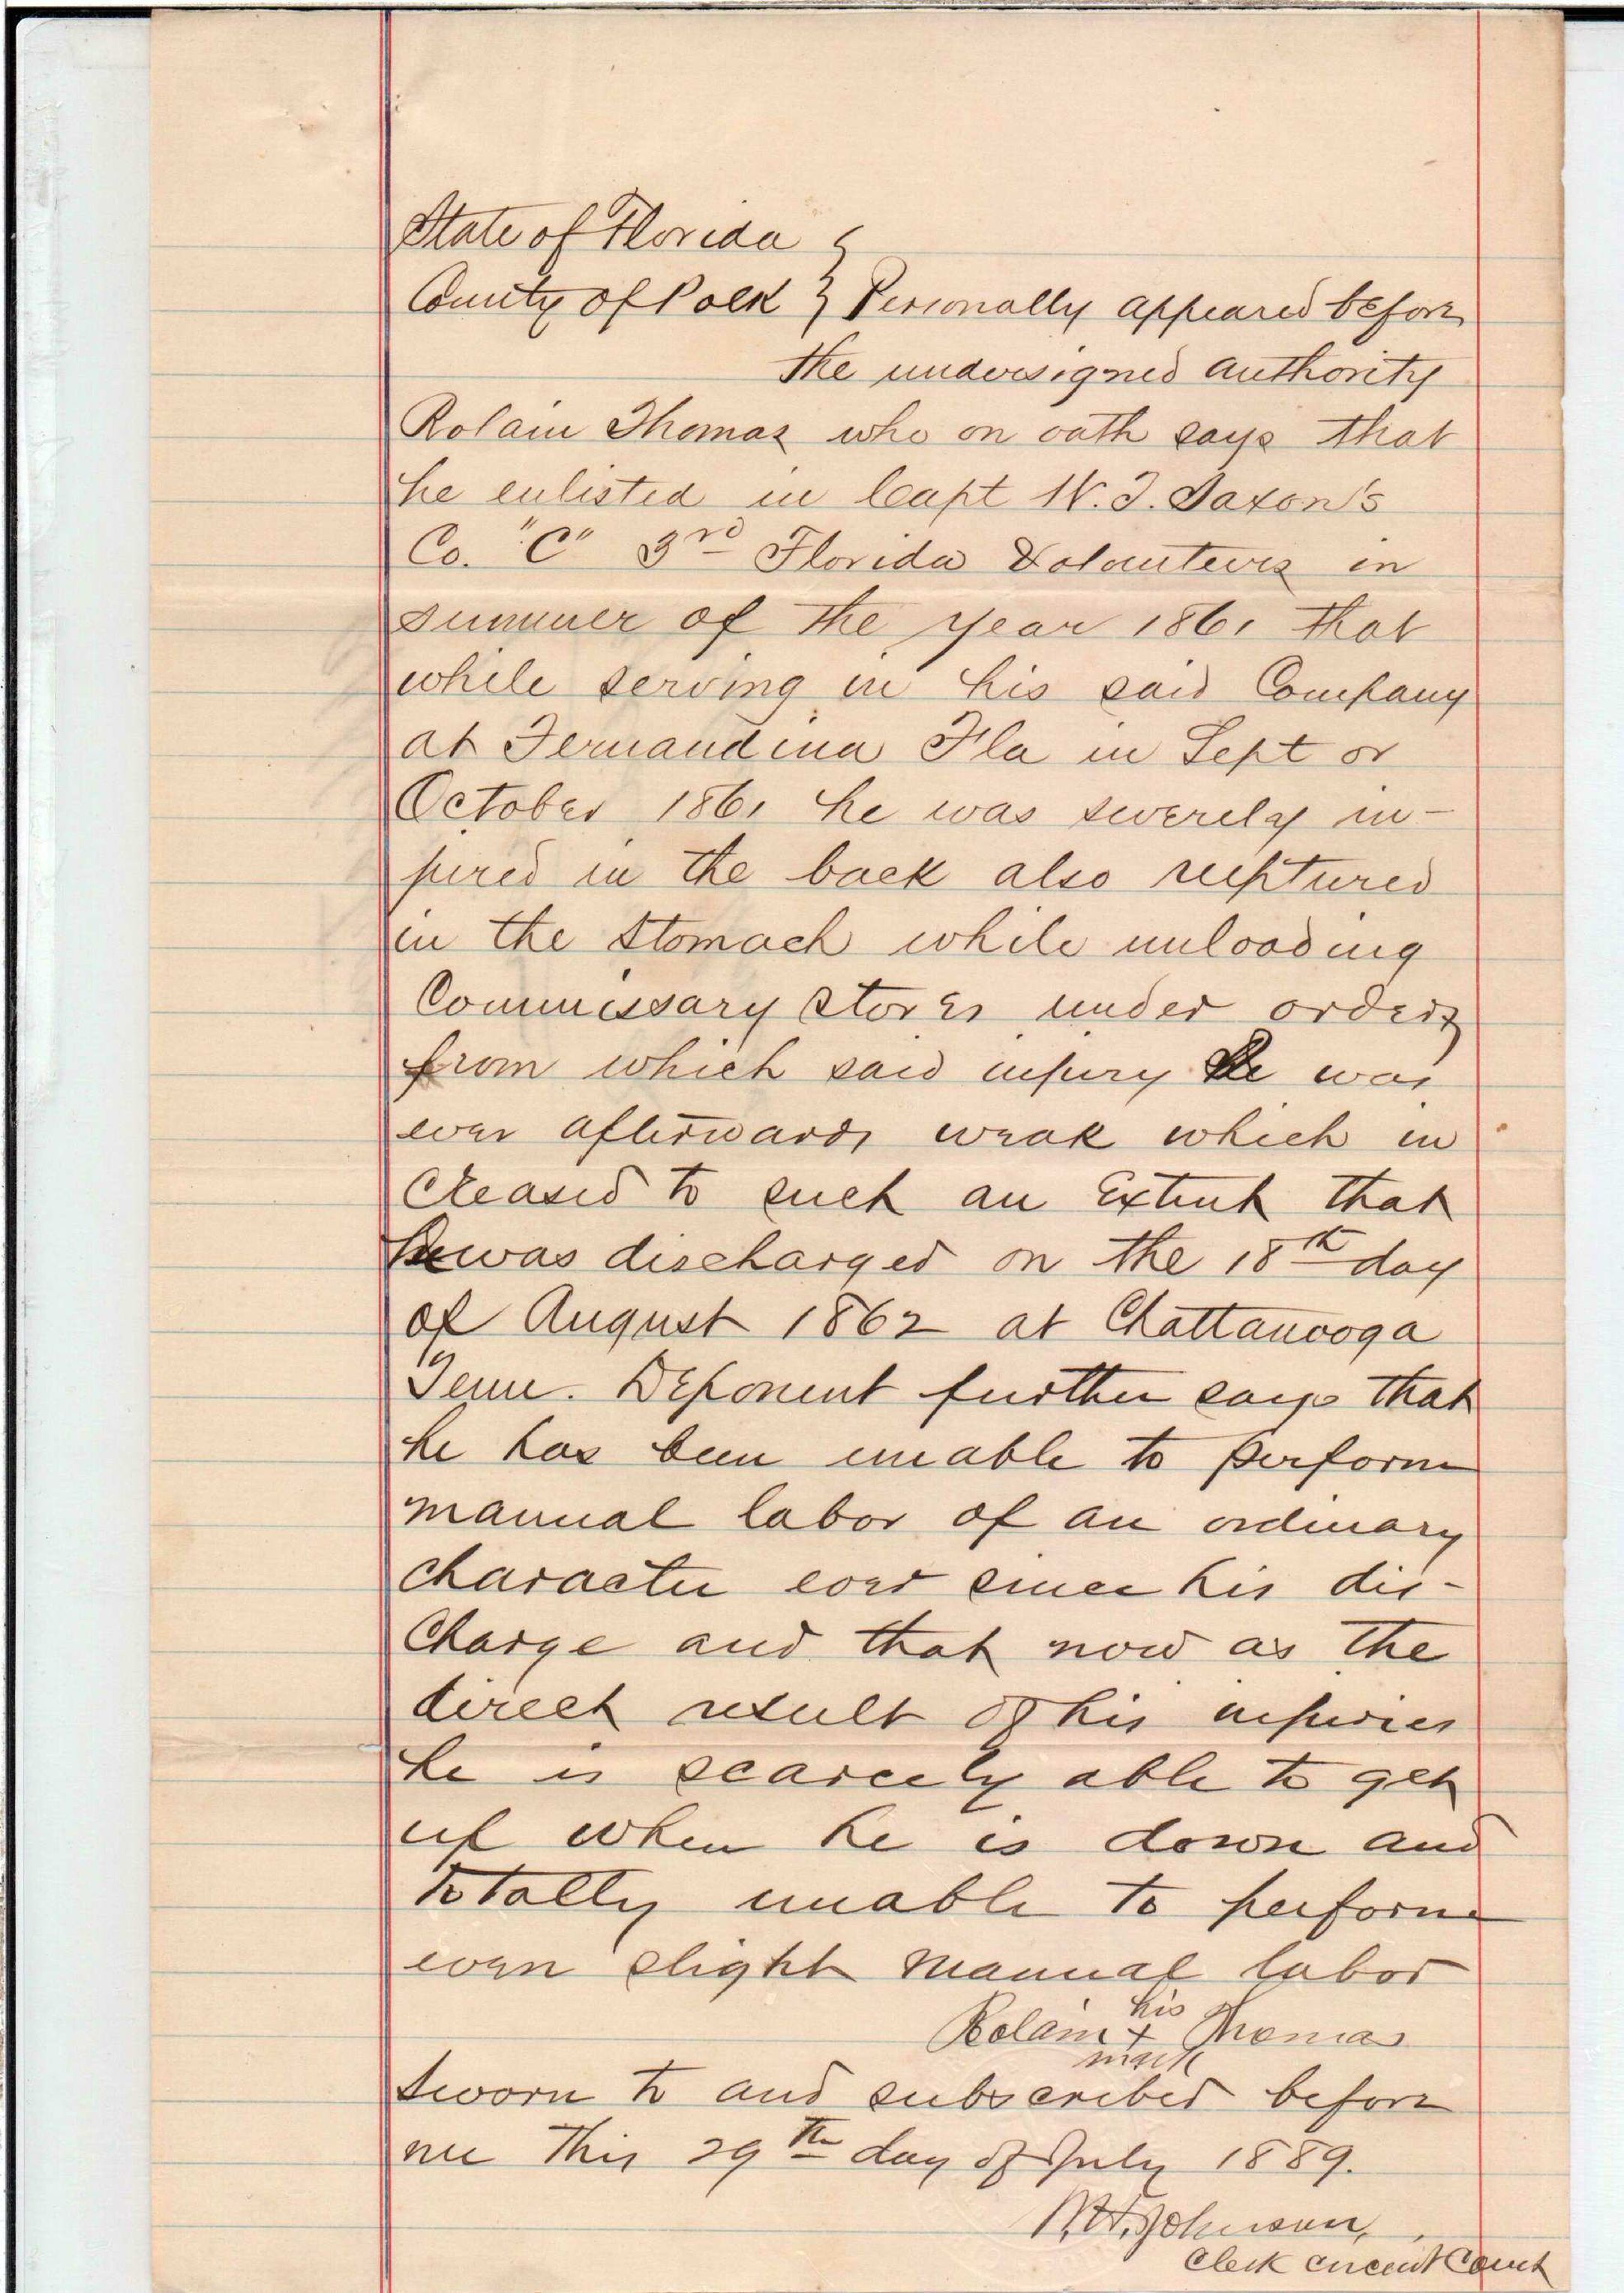 State of Florida }
County of Polk } Personally appeared before
the undersigned authority
Rolain Thomas who on oath says that
he enlisted in Capt W. T. Saxon's
Co. "C" 3rd Florida Volunteers in
summer of the year 1861 that
while serving in his said Company
at Fernandina Fla in Sept or
October 1861 he was severely in-
jured in the back also ruptured
in the stomach while unloading
Commissary stores under orders
from which said injury he was
ever afterwards weak which in
creased to such an extent that
he was discharged on the 18th day
of August 1862 at Chattanooga
Tenn. Deponent further says that
he has been unable to perform
manual labor of an ordinary
character ever since his dis-
charge and that now as the
direct result of his injuries
he is scarcely able to get
up when he is down and
totally unable to perform
even slight manual labor
his
Rolain + Thomas
mark
Sworn to and subscribed before
me this 29th day of July 1889.
Johnson,
Clerk circuit Court